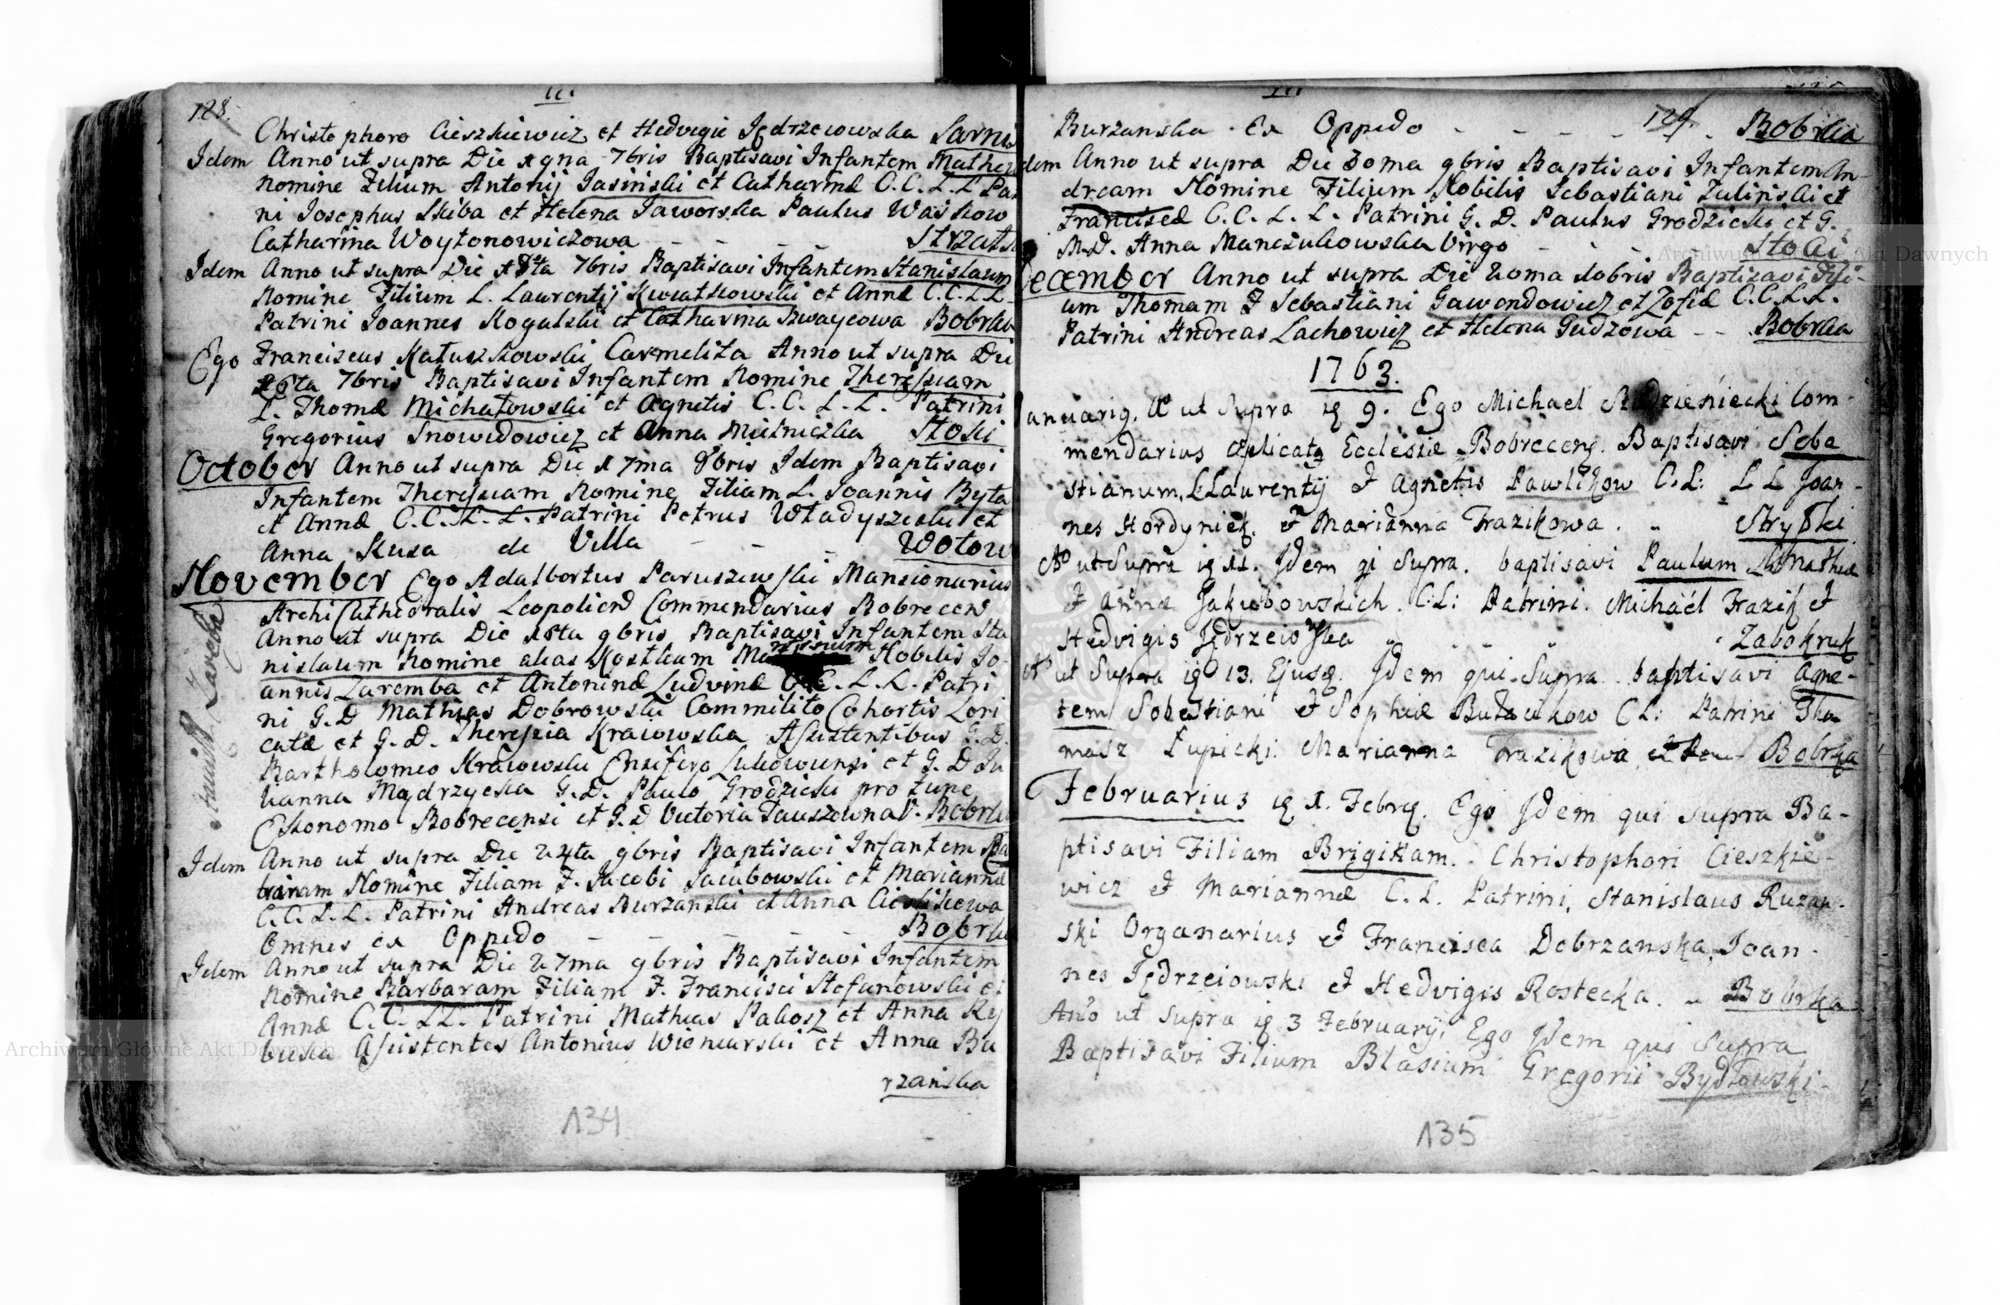 128.
Christophoro Cieszkiewicz et Hedvigie Jędrzeiowska Sarni
Idem Anno ut supra Die 19na 7bris Baptisavi Infantem Mathe
nomine Filium Antonij Jasinski et Catharinæ C.C. L.L. Pat
ni Josephus Skiba et Helena Jaworska Paulus Waskow
Catharina Woytonowiczowa - - - - Strzał
Idem Anno ut supra Die 7bris Baptisavi Infantem Stanislaum
Nomine Filium L. Laurentij Kwiatkowski et Annæ C.C. L.L.
Patrini Joannes Rogalski et Catharina Bobrka
Ego Franciscus Katuszkowski Carmelita Anno ut supra Die
26ta 7bris Baptisavi Infantem Nomine Theressiam
L. Thomæ Michałowski et Agnetis C.C. L.L. Patrini
Gregorius Snowidowicz et Anna Mielniczka Stoki
October Anno ut supra Die 17ma 8bris Idem Baptisavi
Infantem Theressiam Nomine Filiam L. Joannis Byta
et Annæ C.C. L.L. Patrini Petrus Władyszeski et
Anna Kusa de Villa - - - Wołow
November Ego Adalbertus Paruszewski Mansionarius
Archi Cathedralis Leopolien Commendarius Bobrecen
Anno ut supra Die 18ta 9bris Baptisavi Infantem Sta
nislaum Nomine alias Kostkam Nobilis Jo
annis Zaremba et Antoninæ Ludvinæ C.C. L.L. Patri
ni G.D. Mathias Dobrowski Commilito Cohortis Lori
catæ et G.D. Theressia Krajowska Assistentibus G.D.
Bartholomeo Krajowski Ensifero et G.D. Ju
lianna Mądrzycka G.D. Paulo Grodzicki pro tunc
Œkonomo Bobrecensi et G.D. Victoria V. Bobrka
Idem Anno ut supra Die 24ta 9bris Baptisavi Infantem Bar
baram Nomine Filiam F. Jacobi Jacubowski et Mariannæ
C.C. L.L. Patrini Andreas Burzanski et Anna
Omnes ex Oppido - - - - Bobrka
Idem Anno ut supra Die 27ma 9bris Baptisavi Infantem
Nomine Barbaram Filiam F. Francisci Stefanowski et
Annæ C.C. L.L. Patrini Mathias Pabosz et Anna Ry
bicka Assistentes Antonius Wisniarski et Anna Bu
rzanska
134
129.
Burzanska Ex Oppido - - - - Bobrka
Idem Anno ut supra Die 30ma 9bris Baptisavi Infantem An
dream Nomine Filium Nobilis Sebastiani Zulinski et
Franciscæ C.C. L.L. Patrini G.D. Paulus Grodzicki et G.
M.D. Anna Manczukowska Virgo - - - Stoki
December Anno ut supra Die 20ma Xobris Baptisavi Fili-
um Thomam F. Sebastiani Gawendowicz et Zofiæ C.C. L.L.
Patrini Andreas Lachowicz et Helena Gudzowa - - Bobrka
1763.
Januarig. Ao ut Supra ig 9. Ego Michael Com-
mendarius Ecclesiæ Bobrecens. Baptisavi Seba
stianum, LLaurentij et Agnetis Pawlikow C.L. L L Joan-
nes Hordyniek. et Marianna Frazikowa. Stryłki
Ao ut Supra ig 11. Idem qi Supra. baptisavi Paulum Mathiæ
et Annæ Jakubowskich. C.L: Patrini. Michael Frazik et
Hedvigis Jędrzeiowska - Zabokruk
Ao ut Supra ig 13. Ejusq. Idem qui Supra baptisavi Agne-
tem Sebestiani et Sophiæ Buławkow C L: Patrini Tho
masz Lupicki. Marianna Frazikowa, Bobrka
Februarius ig 1. Febrq. Ego Idem qui supra Ba-
ptisavi Filiam Brigittam. Christophori Cieszkie-
wicz et Mariannæ C. L. Patrini, Stanislaus Ruzan-
ski Organarius et Francisca Dobrzanska, Joan-
nes Jędrzeiowski et Hedvigis Rostecka. Bobrka
Ano ut supra ig 3 Februarij, Ego Idem qui Supra
Baptisavi Filium Blasium Gregorii Bydłowski-
135
Archiwum Główne Akt Dawnych
Archiwum Główne Akt Dawnych